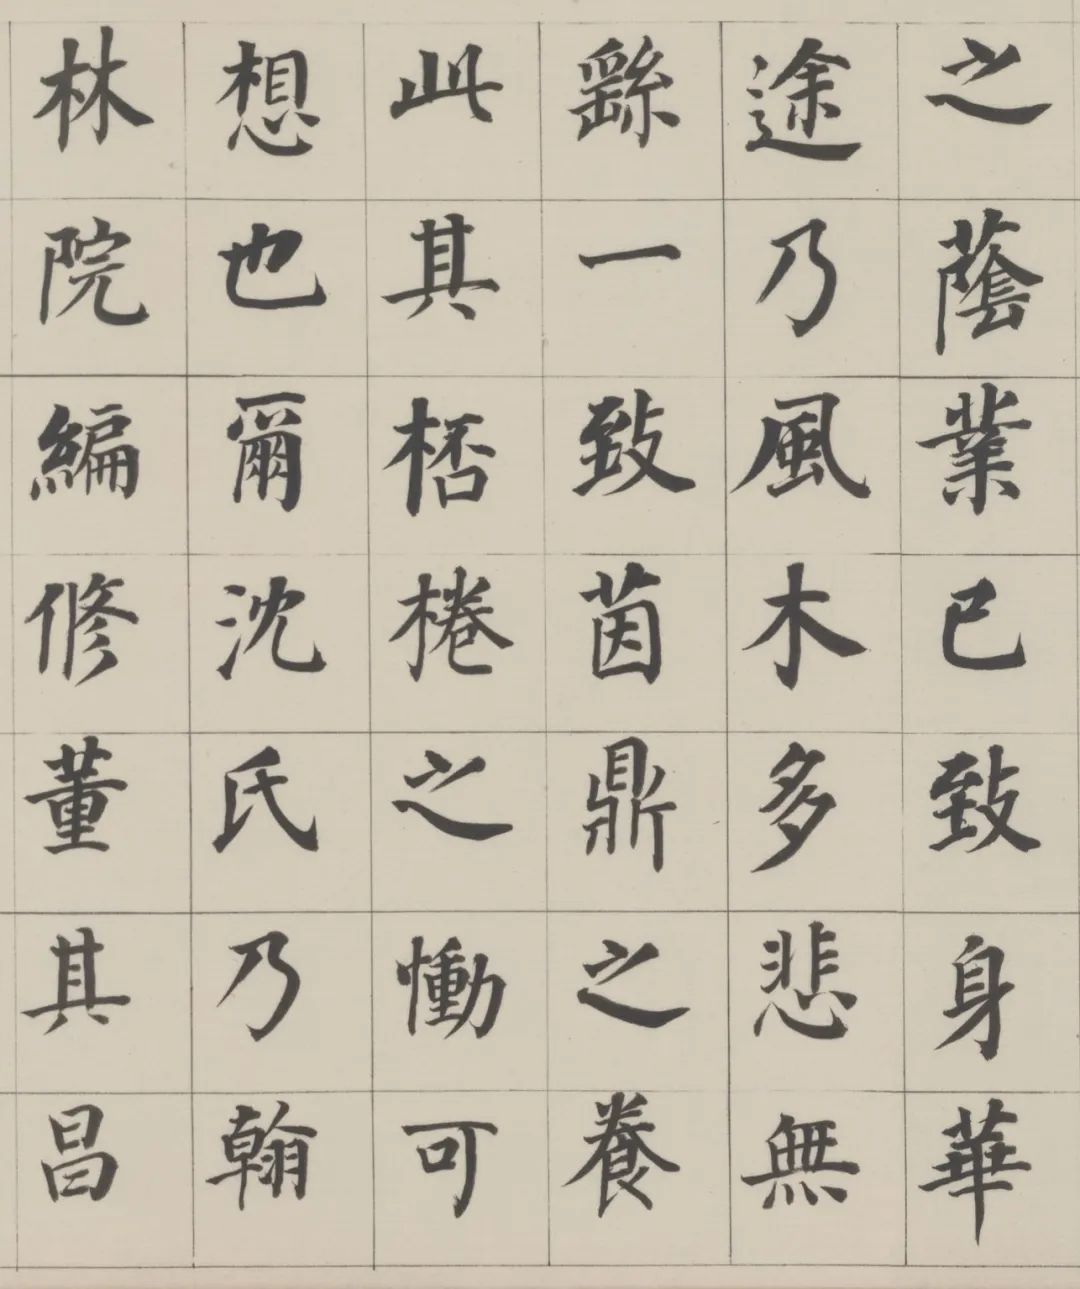 之蔭業已致身華
途乃風木多悲無
繇一致茵鼎之養
此其桮棬之慟可
想也爾沈氏乃翰
林院編修董其昌